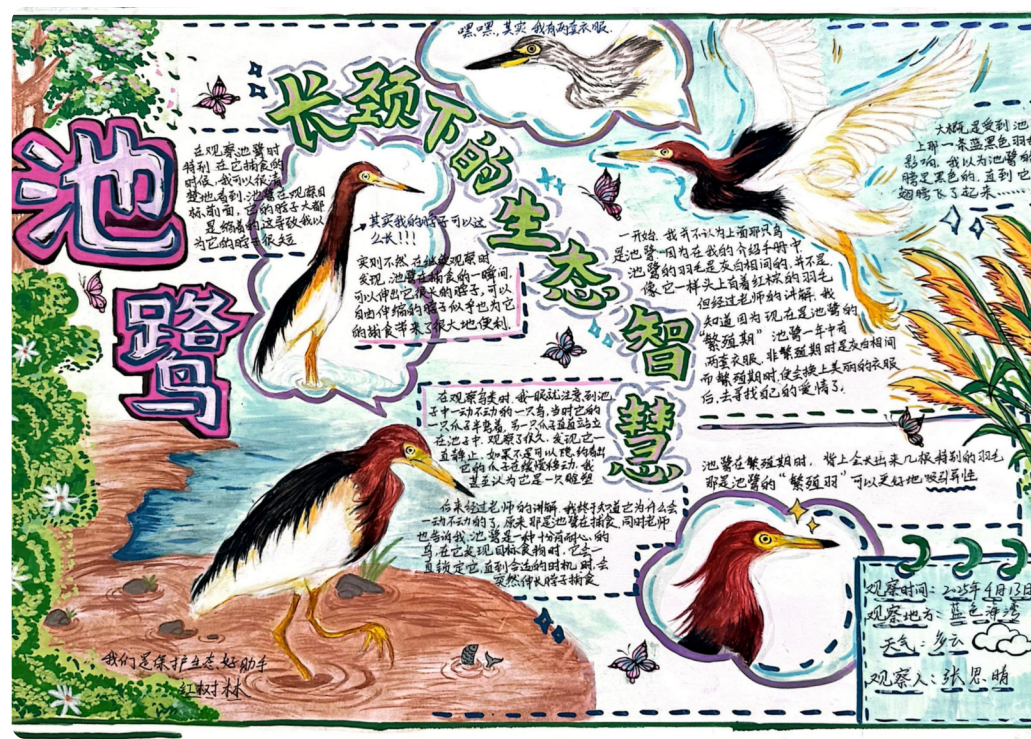 池鹭
长颈下的生态智慧
嘿嘿,其实 我有两套衣服.
在观察池鹭时
特别 在它捕食的
时候,我可以很清
楚地看到,池鹭在观察目
标前面,它的脖子大都
是缩着的这导致我以
为它的脖子很短
其实我的脖子可以这
么长!!!
实则不然,在继续观察时
发现,池鹭在捕食的一瞬间,
可以伸出它很长的脖子,可以
自由伸缩的脖子似乎也为它
的捕食带来了很大地便利.
大概是受到池
上那一条蓝黑色羽
影响,我以为池鹭
膀是黑色的,直到它
翅膀飞了起来……
一开始,我并不认为上面那只鸟
是池鹭.因为在我的介绍手册中
池鹭的羽毛是灰白相间的,并不是
像它一样头上有着红棕的羽毛
但经过老师的讲解,我
知道因为现在是池鹭的
“繁殖期” 池鹭一年中有
两套衣服,非繁殖期时是灰白相间
而繁殖期时,便会换上美丽的衣服
后,去寻找自己的爱情了.
在观察鸟类时,我一眼就注意到池
子中一动不动的一只鸟,当时它的
一只爪子半卷着,另一只爪子直直站立
在池子中.观察了很久,发现它一
直静止,如果不是可以隐约看出
它的爪子在缓慢移动,我
甚至认为它是一只雕塑
后来经过老师的讲解,我终于知道它为什么会
一动不动的了,原来那是池鹭在捕食,同时老师
也告诉我,池鹭是一种十分有耐心的
鸟,在它发现目标食物时,它会一
直锁定它,直到合适的时机 时,会
突然伸长脖子捕食
池鹭在繁殖期时,背上会长出来几根特别的羽毛
那是池鹭的“繁殖羽”可以更好地吸引异性
我们是保护生态好助手
红树林
观察时间:2025年4月13日
观察地方:蓝色海湾
天气:多云
观察人:张思晴